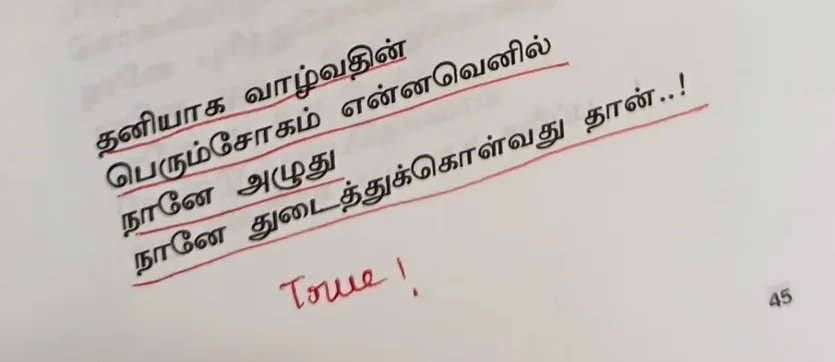 தனியாக வாழ்வதின்
பெரும்சோகம் என்னவெனில்
நானே அழுது
நானே துடைத்துக்கொள்வது தான்..!
True!
45